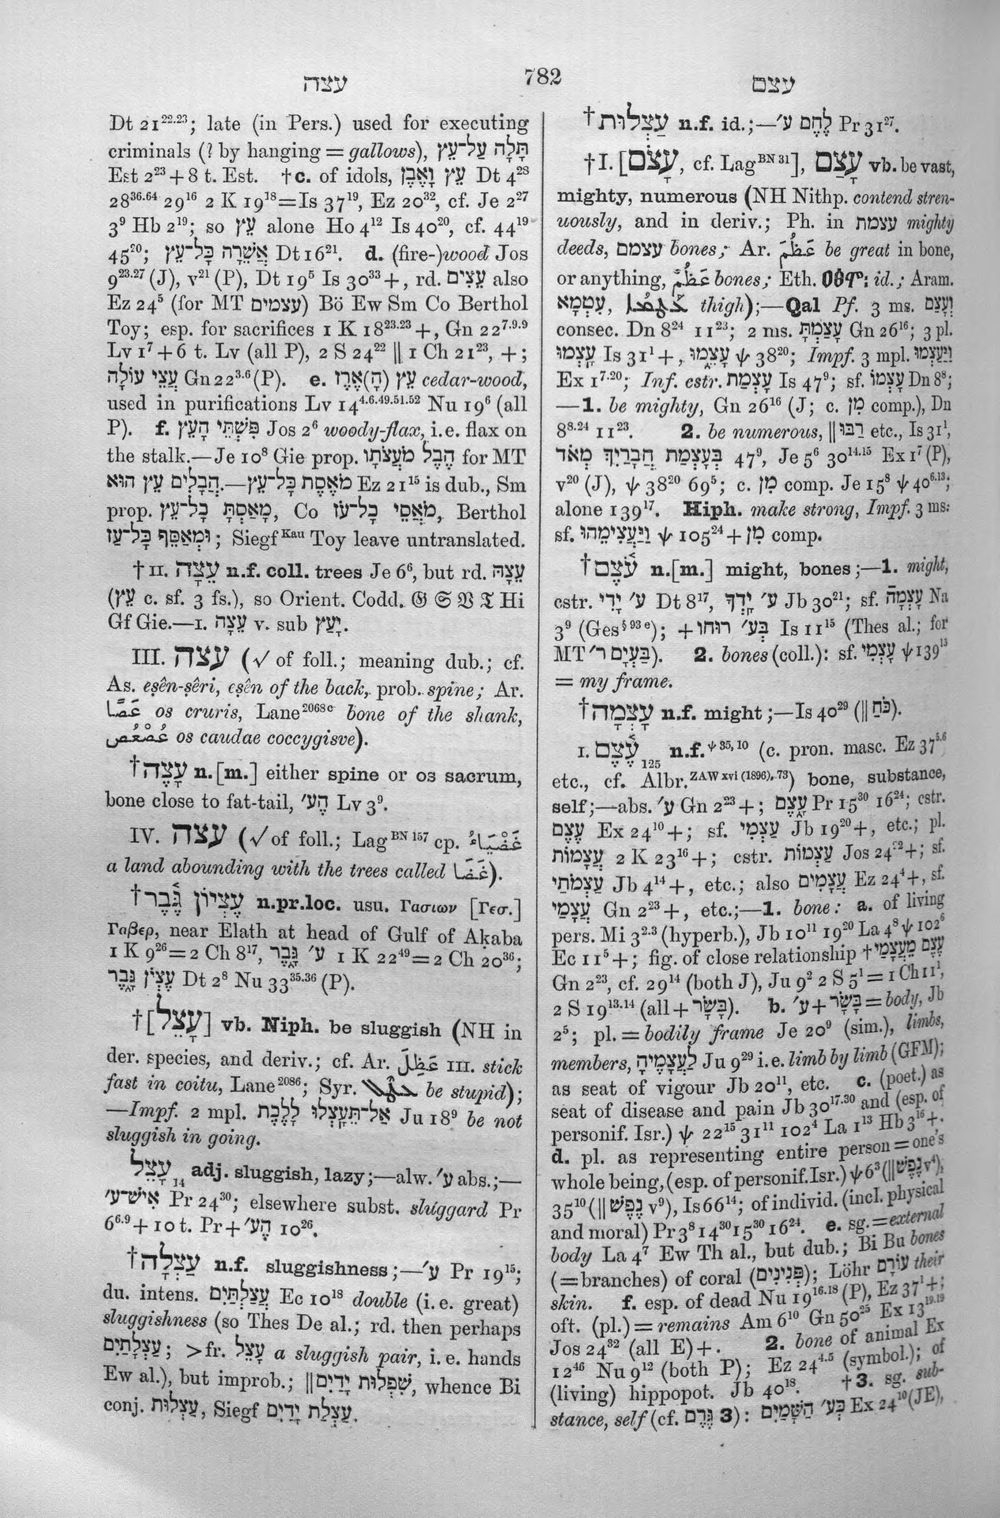 עצה
782
עצם
Dt 21²²·²³; late (in Pers.) used for executing
criminals (? by hanging = gallows), תָּלָה עַל־עֵץ
Est 2²³ + 8 t. Est. †c. of idols, עֵץ וָאֶבֶן Dt 4²⁸
28³⁶·⁶⁴ 29¹⁶ 2 K 19¹⁸=Is 37¹⁹, Ez 20³², cf. Je 2²⁷
3⁹ Hb 2¹⁹; so עֵץ alone Ho 4¹² Is 40²⁰, cf. 44¹⁹
45²⁰; אֲשֵׁרָה כָּל־עֵץ Dt 16²¹. d. (fire-)wood Jos
9²³·²⁷ (J), v²¹ (P), Dt 19⁵ Is 30³³ +, rd. עֵצִים also
Ez 24⁵ (for MT עצמים) Bö Ew Sm Co Berthol
Toy; esp. for sacrifices 1 K 18²³·²³ +, Gn 22⁷·⁹·⁹
Lv 1⁷ + 6 t. Lv (all P), 2 S 24²² ‖ 1 Ch 21²³, +;
עֲצֵי עוֹלָה Gn 22³·⁶ (P). e. עֵץ (הָ)אֶרֶז cedar-wood,
used in purifications Lv 14⁴·⁶·⁴⁹·⁵¹·⁵² Nu 19⁶ (all
P). f. פִּשְׁתֵּי הָעֵץ Jos 2⁶ woody-flax, i.e. flax on
the stalk.—Je 10⁸ Gie prop. הֶבֶל מֹעֲצֹתָיו for MT
הֲבָלִים עֵץ הוּא.—מֹאֶסֶת כָּל־עֵץ Ez 21¹⁵ is dub., Sm
prop. מָאַסְתָּ בְּכָל־עֵץ, Co מֹאֲסֵי כָּל־עֹז, Berthol
וּמְאַסֵּף כָּל־עֹז; Siegf ᴷᵃᵘ Toy leave untranslated.
†II. עֵצָה n.f. coll. trees Je 6⁶, but rd. עֵצָהּ
(עֵץ c. sf. 3 fs.), so Orient. Codd. 𝔊 𝔖 𝔙 𝔗 Hi
Gf Gie.—I. עֵצָה v. sub יָעַץ.
III. עצה (√ of foll.; meaning dub.; cf.
As. eṣên-ṣêri, eṣên of the back, prob. spine; Ar.
عَصًا os cruris, Lane²⁰⁶⁸ᶜ bone of the shank,
عُصْعُص os caudae coccygisve).
†עָצֶה n.[m.] either spine or os sacrum,
bone close to fat-tail, הֶעָ׳ Lv 3⁹.
IV. עצה (√ of foll.; Lag ᴮᴺ ¹⁵⁷ cp. غَضْيَاءُ
a land abounding with the trees called غَضًا).
†עֶצְיוֹן גֶּבֶר n.pr.loc. usu. Γασιων [Γεσ.]
Γαβερ, near Elath at head of Gulf of Aḳaba
1 K 9²⁶=2 Ch 8¹⁷, ע׳ גָּבֶר 1 K 22⁴⁹=2 Ch 20³⁶;
עֶצְיֹן גָּבֶר Dt 2⁸ Nu 33³⁵·³⁶ (P).
†[עָצֵל] vb. Niph. be sluggish (NH in
der. species, and deriv.; cf. Ar. عَظَلَ III. stick
fast in coitu, Lane²⁰⁸⁶; Syr. be stupid);
—Impf. 2 mpl. אַל־תֵּעָצְלוּ לָלֶכֶת Ju 18⁹ be not
sluggish in going.
עָצֵל₁₄ adj. sluggish, lazy;—alw. ע׳ abs.;—
אִישׁ־ע׳ Pr 24³⁰; elsewhere subst. sluggard Pr
6⁶·⁹ + 10 t. Pr + הֶע׳ 10²⁶.
†עַצְלָה n.f. sluggishness;—ע׳ Pr 19¹⁵;
du. intens. עֲצַלְתַּיִם Ec 10¹⁸ double (i. e. great)
sluggishness (so Thes De al.; rd. then perhaps
עַצְלָתַיִם; >fr. עָצֵל a sluggish pair, i. e. hands
Ew al.), but improb.; ‖ שִׁפְלוּת יָדַיִם, whence Bi
conj. עַצְלוּת, Siegf עַצְלַת יָדַיִם.
†עַצְלוּת n.f. id.;—לֶחֶם ע׳ Pr 31²⁷.
†I. [עָצֹם, cf. Lag ᴮᴺ ³¹], עָצַם vb. be vast,
mighty, numerous (NH Nithp. contend stren-
uously, and in deriv.; Ph. in עצמת mighty
deeds, עצמם bones; Ar. عَظُمَ be great in bone,
or anything, عَظْمٌ bones; Eth. id.; Aram.
עִטְמָא, thigh);—Qal Pf. 3 ms. וְעָצַם
consec. Dn 8²⁴ 11²³; 2 ms. עָצַמְתָּ Gn 26¹⁶; 3 pl.
עָצְמוּ Is 31¹ +, עָצֵמוּ ψ 38²⁰; Impf. 3 mpl. וַיַּעַצְמוּ
Ex 1⁷·²⁰; Inf. cstr. עָצְמַת Is 47⁹; sf. עָצְמוֹ Dn 8⁸;
—1. be mighty, Gn 26¹⁶ (J; c. מִן comp.), Dn
8⁸·²⁴ 11²³. 2. be numerous, ‖ רבו etc., Is 31¹,
בְּעָצְמַת חֲבָרַיִךְ מְאֹד 47⁹, Je 5⁶ 30¹⁴·¹⁵ Ex 1⁷ (P),
v²⁰ (J), ψ 38²⁰ 69⁵; c. מִן comp. Je 15⁸ ψ 40⁶·¹³;
alone 139¹⁷. Hiph. make strong, Impf. 3 ms.
sf. וַיַּעֲצִמֵהוּ ψ 105²⁴ + מִן comp.
†עֹצֶם n.[m.] might, bones;—1. might,
cstr. ע׳ יָדִי Dt 8¹⁷, ע׳ יָדְךָ Jb 30²¹; sf. עָצְמָהּ Na
3⁹ (Ges§⁹³ᵉ); + בְּע׳ רוּחוֹ Is 11¹⁵ (Thes al.; for
MT בַּעְיָם ר׳). 2. bones (coll.): sf. עָצְמִי ψ 139¹⁵
= my frame.
†עָצְמָה n.f. might;—Is 40²⁹ (‖ כֹּחַ).
I. עֶצֶם₁₂₅ n.f. ψ ³⁵·¹⁰ (c. pron. masc. Ez 37⁵·⁶
etc., cf. Albr. ᶻᴬᵂ ˣᵛⁱ ⁽¹⁸⁹⁶⁾·⁷³) bone, substance,
self;—abs. ע׳ Gn 2²³ +; עָצֶם Pr 15³⁰ 16²⁴; cstr.
עֶצֶם Ex 24¹⁰ +; sf. עַצְמִי Jb 19²⁰ +, etc.; pl.
עֲצָמוֹת 2 K 23¹⁶ +; cstr. עַצְמוֹת Jos 24³² +; sf.
עַצְמֹתַי Jb 4¹⁴ +, etc.; also עֲצָמִים Ez 24⁴ +, sf.
עֲצָמַי Gn 2²³ +, etc.;—1. bone: a. of living
pers. Mi 3²·³ (hyperb.), Jb 10¹¹ 19²⁰ La 4⁸ ψ 102⁶
Ec 11⁵ +; fig. of close relationship †עֶצֶם מֵעֲצָמַי
Gn 2²³, cf. 29¹⁴ (both J), Ju 9² 2 S 5¹ = 1 Ch 11¹,
2 S 19¹³·¹⁴ (all + בָּשָׂר). b. ע׳ + בָּשָׂר = body, Jb
2⁵; pl. = bodily frame Je 20⁹ (sim.), limbs,
members, לַעֲצָמֶיהָ Ju 9²⁹ i.e. limb by limb (GFM);
as seat of vigour Jb 20¹¹, etc. c. (poet.) as
seat of disease and pain Jb 30¹⁷·³⁰ and (esp. of
personif. Isr.) ψ 22¹⁵ 31¹¹ 102⁴ La 1¹³ Hb 3¹⁶ +.
d. pl. as representing entire person = one's
whole being, (esp. of personif. Isr.) ψ 6³ (‖ נֶפֶשׁ v⁴),
35¹⁰ (‖ נֶפֶשׁ v⁹), Is 66¹⁴; of individ. (incl. physical
and moral) Pr 3⁸ 14³⁰ 15³⁰ 16²⁴. e. sg. = external
body La 4⁷ Ew Th al., but dub.; Bi Bu bones
(=branches) of coral (פְּנִינִים); Löhr עוֹרָם their
skin. f. esp. of dead Nu 19¹⁶·¹⁸ (P), Ez 37¹ +;
oft. (pl.) = remains Am 6¹⁰ Gn 50²⁵ Ex 13¹⁹·¹⁹
Jos 24³² (all E) +. 2. bone of animal Ex
12⁴⁶ Nu 9¹² (both P); Ez 24⁴·⁵ (symbol.); of
(living) hippopot. Jb 40¹⁸. †3. sg. sub-
stance, self (cf. גֶּרֶם 3): כְּע׳ הַשָּׁמַיִם Ex 24¹⁰ (JE),